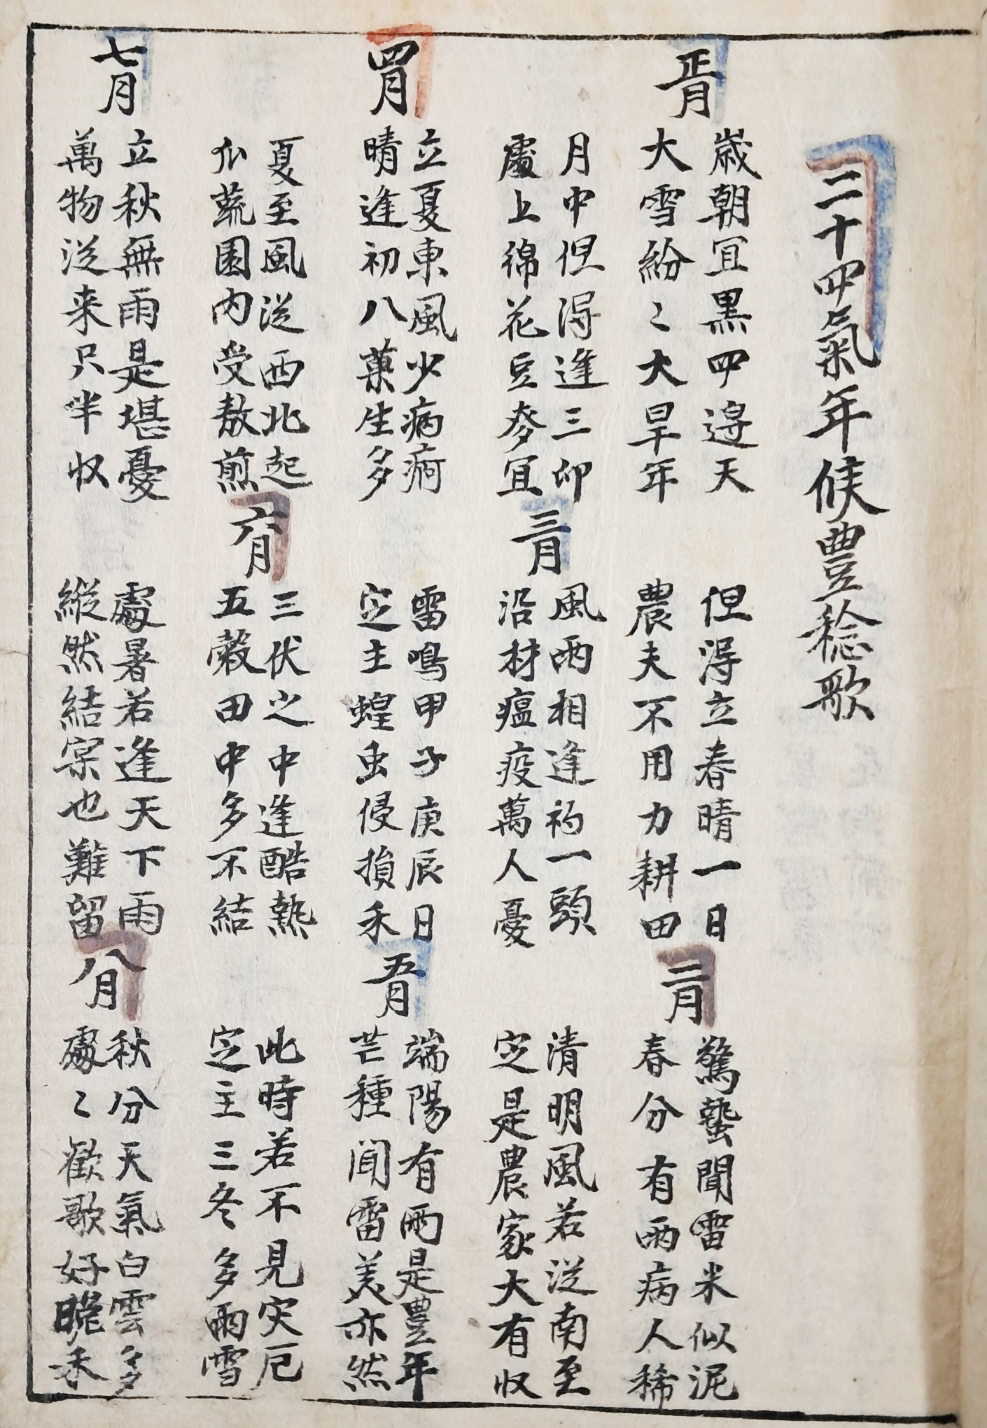 二十四氣年候豊稔歌
正月
歲朝冝黒四邉天
大雪紛〻大旱年
但淂立春晴一日
農夫不用力耕田
二月
驚蟄聞雷米似泥
春分有雨病人稀
月中但淂逢三卯
處上綿花豆麥冝
三月
風雨相逢初一頭
沿村瘟疫萬人憂
清明風若従南至
定是農家大有収
四月
立夏東風少病疴
晴逢初八菓生多
雷鳴甲子庚辰日
定主蝗虫侵損禾
五月
端陽有雨是豊年
芒種聞雷美亦然
夏至風従西北起
瓜蔬園内受熬煎
六月
三伏之中逢酷熱
五穀田中多不結
此時若不見灾厄
定主三冬多雨雪
七月
立秋無雨是堪憂
萬物従来只半収
處暑若逢天下雨
縱然結實也難留
八月
秋分天氣白雲多
處〻歡歌好晚禾